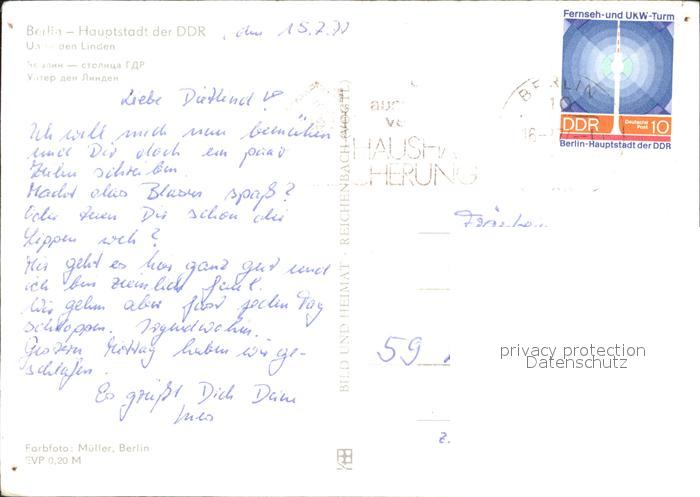 Berlin – Hauptstadt der DDR
Unter den Linden
Берлин — столица ГДР
Унтер ден Линден
, den 15.7.70
Liebe Dietlind!
Ich will mich nun bemühen
und Dir doch ein paar
Zeilen schreiben.
Macht das Blasen spaß?
Oder tuen Dir schon die
Lippen weh?
Mir geht es hier ganz gut und
ich bin ziemlich faul.
Wir gehn aber fast jeden Tag
schoppen. Irgendwohin.
Gestern Mittag haben wir ge-
schlafen.
Es grüßt Dich Deine
Ines
Farbfoto: Müller, Berlin
EVP 0,20 M
BILD UND HEIMAT · REICHENBACH (VOGTL)
Fernseh- und UKW-Turm
DDR
Deutsche Post
10
Berlin-Hauptstadt der DDR
BERLIN
10
HAUSHA
CHERUNG
Fräulein
59
z.
privacy protection
Datenschutz